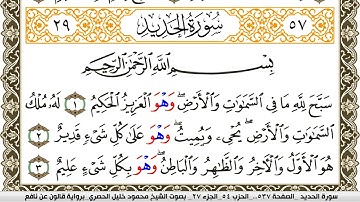 ٢٩ سُورَةُ الحَدِيدِ ٥٧
بِسْمِ اللَّهِ الرَّحْمَٰنِ الرَّحِيمِ
سَبَّحَ لِلَّهِ مَا فِي السَّمَٰوَٰتِ وَالْأَرْضِ وَهْوَ الْعَزِيزُ الْحَكِيمُ ١ لَهُ مُلْكُ
السَّمَٰوَٰتِ وَالْأَرْضِ يُحْيِي وَيُمِيتُ وَهْوَ عَلَىٰ كُلِّ شَيْءٍ قَدِيرٌ ٢
هُوَ الْأَوَّلُ وَالْآخِرُ وَالظَّٰهِرُ وَالْبَاطِنُ وَهْوَ بِكُلِّ شَيْءٍ عَلِيمٌ ٣
سورة الحديد _الصفحة ٥٣٧_ الحزب ٥٤_ الجزء ٢٧_ بصوت الشيخ محمود خليل الحصري_ برواية قالون عن نافع